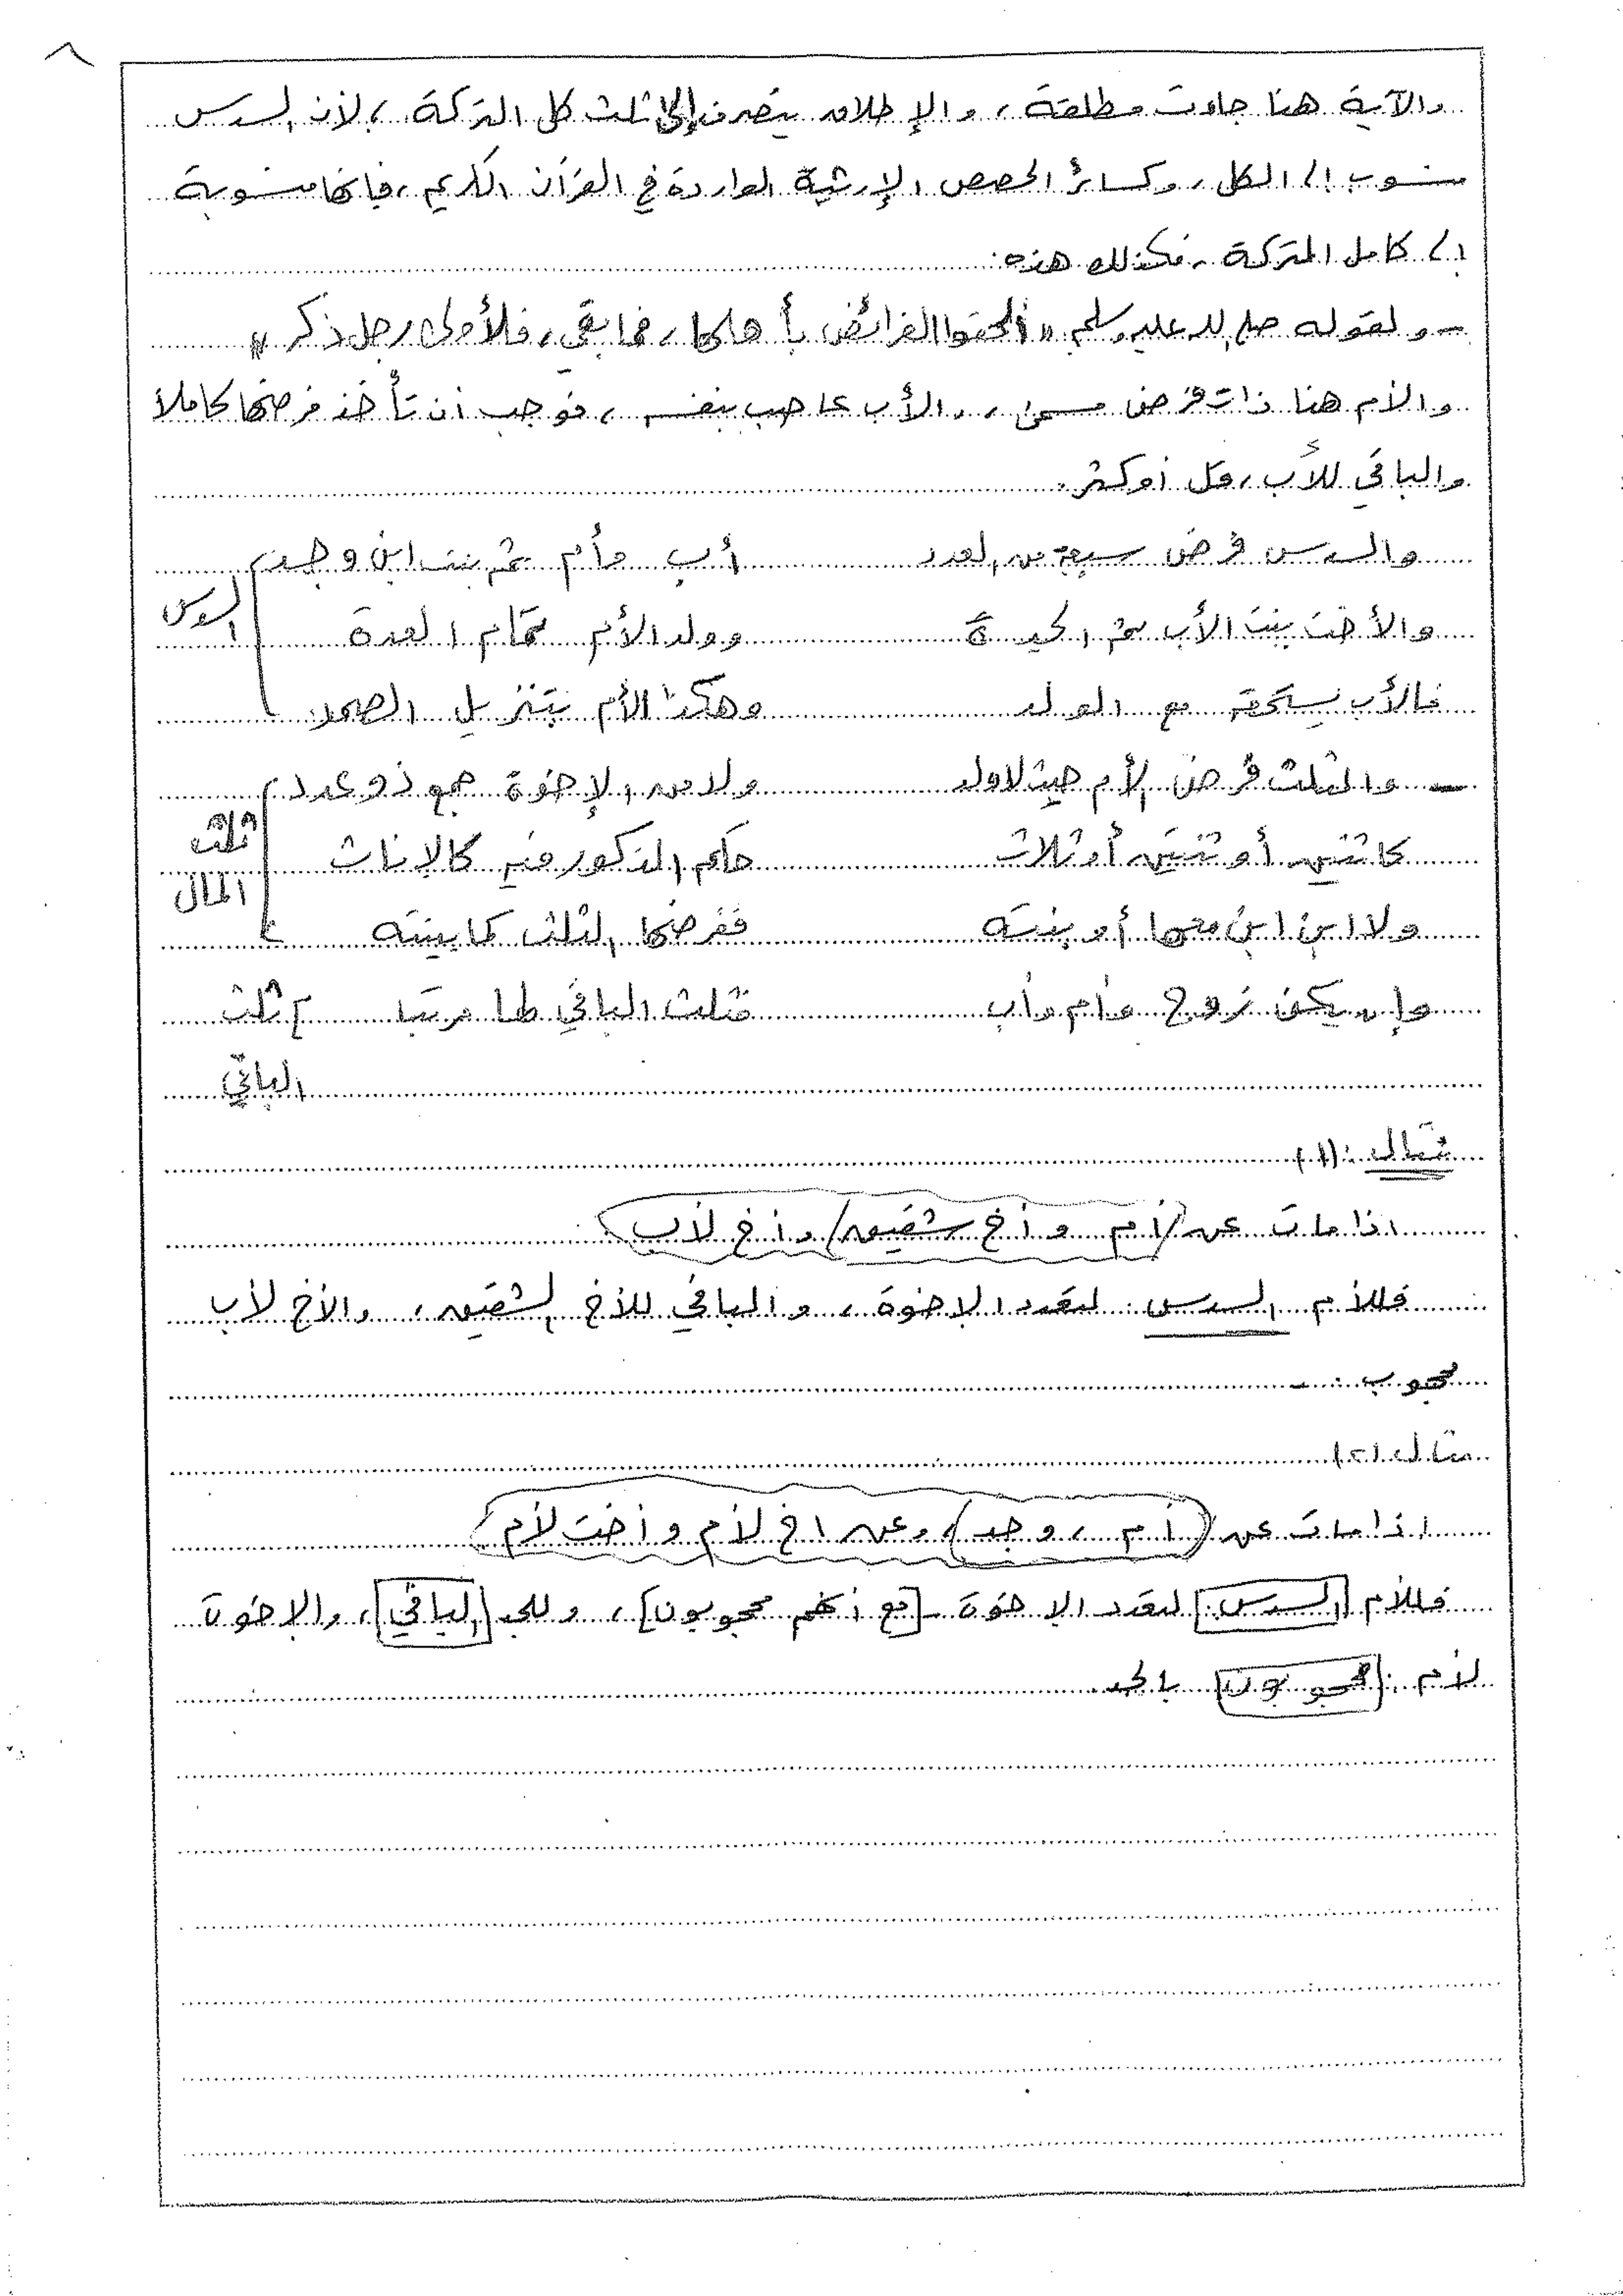 ٨
والآية هنا جاءت مطلقة، والإطلاق ينصرف إلى ثلث كل التركة، لأن السدس
منسوب إلى الكل، وكسائر الحصص الإرثية الواردة في القرآن الكريم، فإنها منسوبة
إلى كامل التركة، فكذلك هذه.
- ولقوله صلى الله عليه وسلم «ألحقوا الفرائض بأهلها، فما بقي، فلأولى رجل ذكر»
والأم هنا ذات فرض مسمى، والأب عاصب بنفسه، فوجب أن تأخذ فرضها كاملاً
والباقي للأب، قل أو كثر.
والسدس فرض سبعة من العدد أب وأم ثم بنت ابن وجد
السدس
والأخت بنت الأب ثم الجدة وولد الأم تمام العدة
فالأب يستحقه مع الولد وهكذا الأم بتنزيل الصمد
- والثلث فرض الأم حيث لا ولد ولا من الإخوة جمع ذو عدد
ثلث
كاثنين أو ثنتين أو ثلاث حكم الذكور فيه كالإناث
المال
ولا ابن ابن معها أو بنته ففرضها الثلث كما بينته
وإن يكن زوج وأم وأب فثلث الباقي لها مرتبا ثلث
الباقي
مثال: (١)
إذا مات عن (أم وأخ شقيق) وأخ لأب
فللأم السدس لتعدد الإخوة، والباقي للأخ الشقيق، والأخ لأب
محجوب.
مثال (٢)
إذا مات عن (أم، وجد)، وعن أخ لأم وأخت لأم
فللأم [السدس] لتعدد الإخوة [مع أنهم محجوبون]، وللجد [الباقي]، والإخوة
لأم: [محجوبون] بالجد.